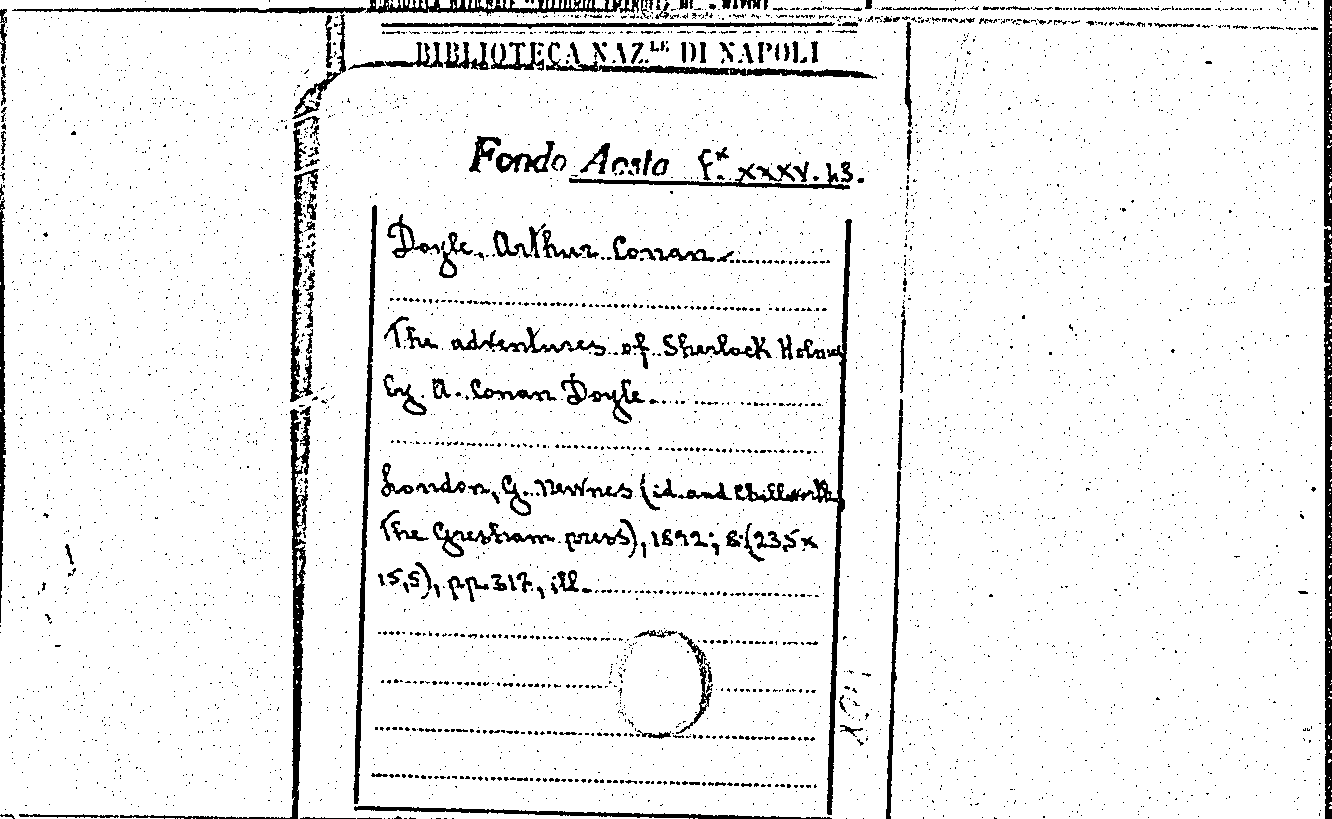 BIBLIOTECA NAZIONALE "VITTORIO EMANUELE" DI NAPOLI
BIBLIOTECA NAZ.LE DI NAPOLI
Fondo Aosta f.x xxxv. 43.
Doyle, Arthur Conan
The adventures of Sherlock Holmes
by A. Conan Doyle.
London, G. Newnes (id. and Chilworth
The Gresham press), 1892; 8. (23,5 x
15,5), pp. 317, ill.